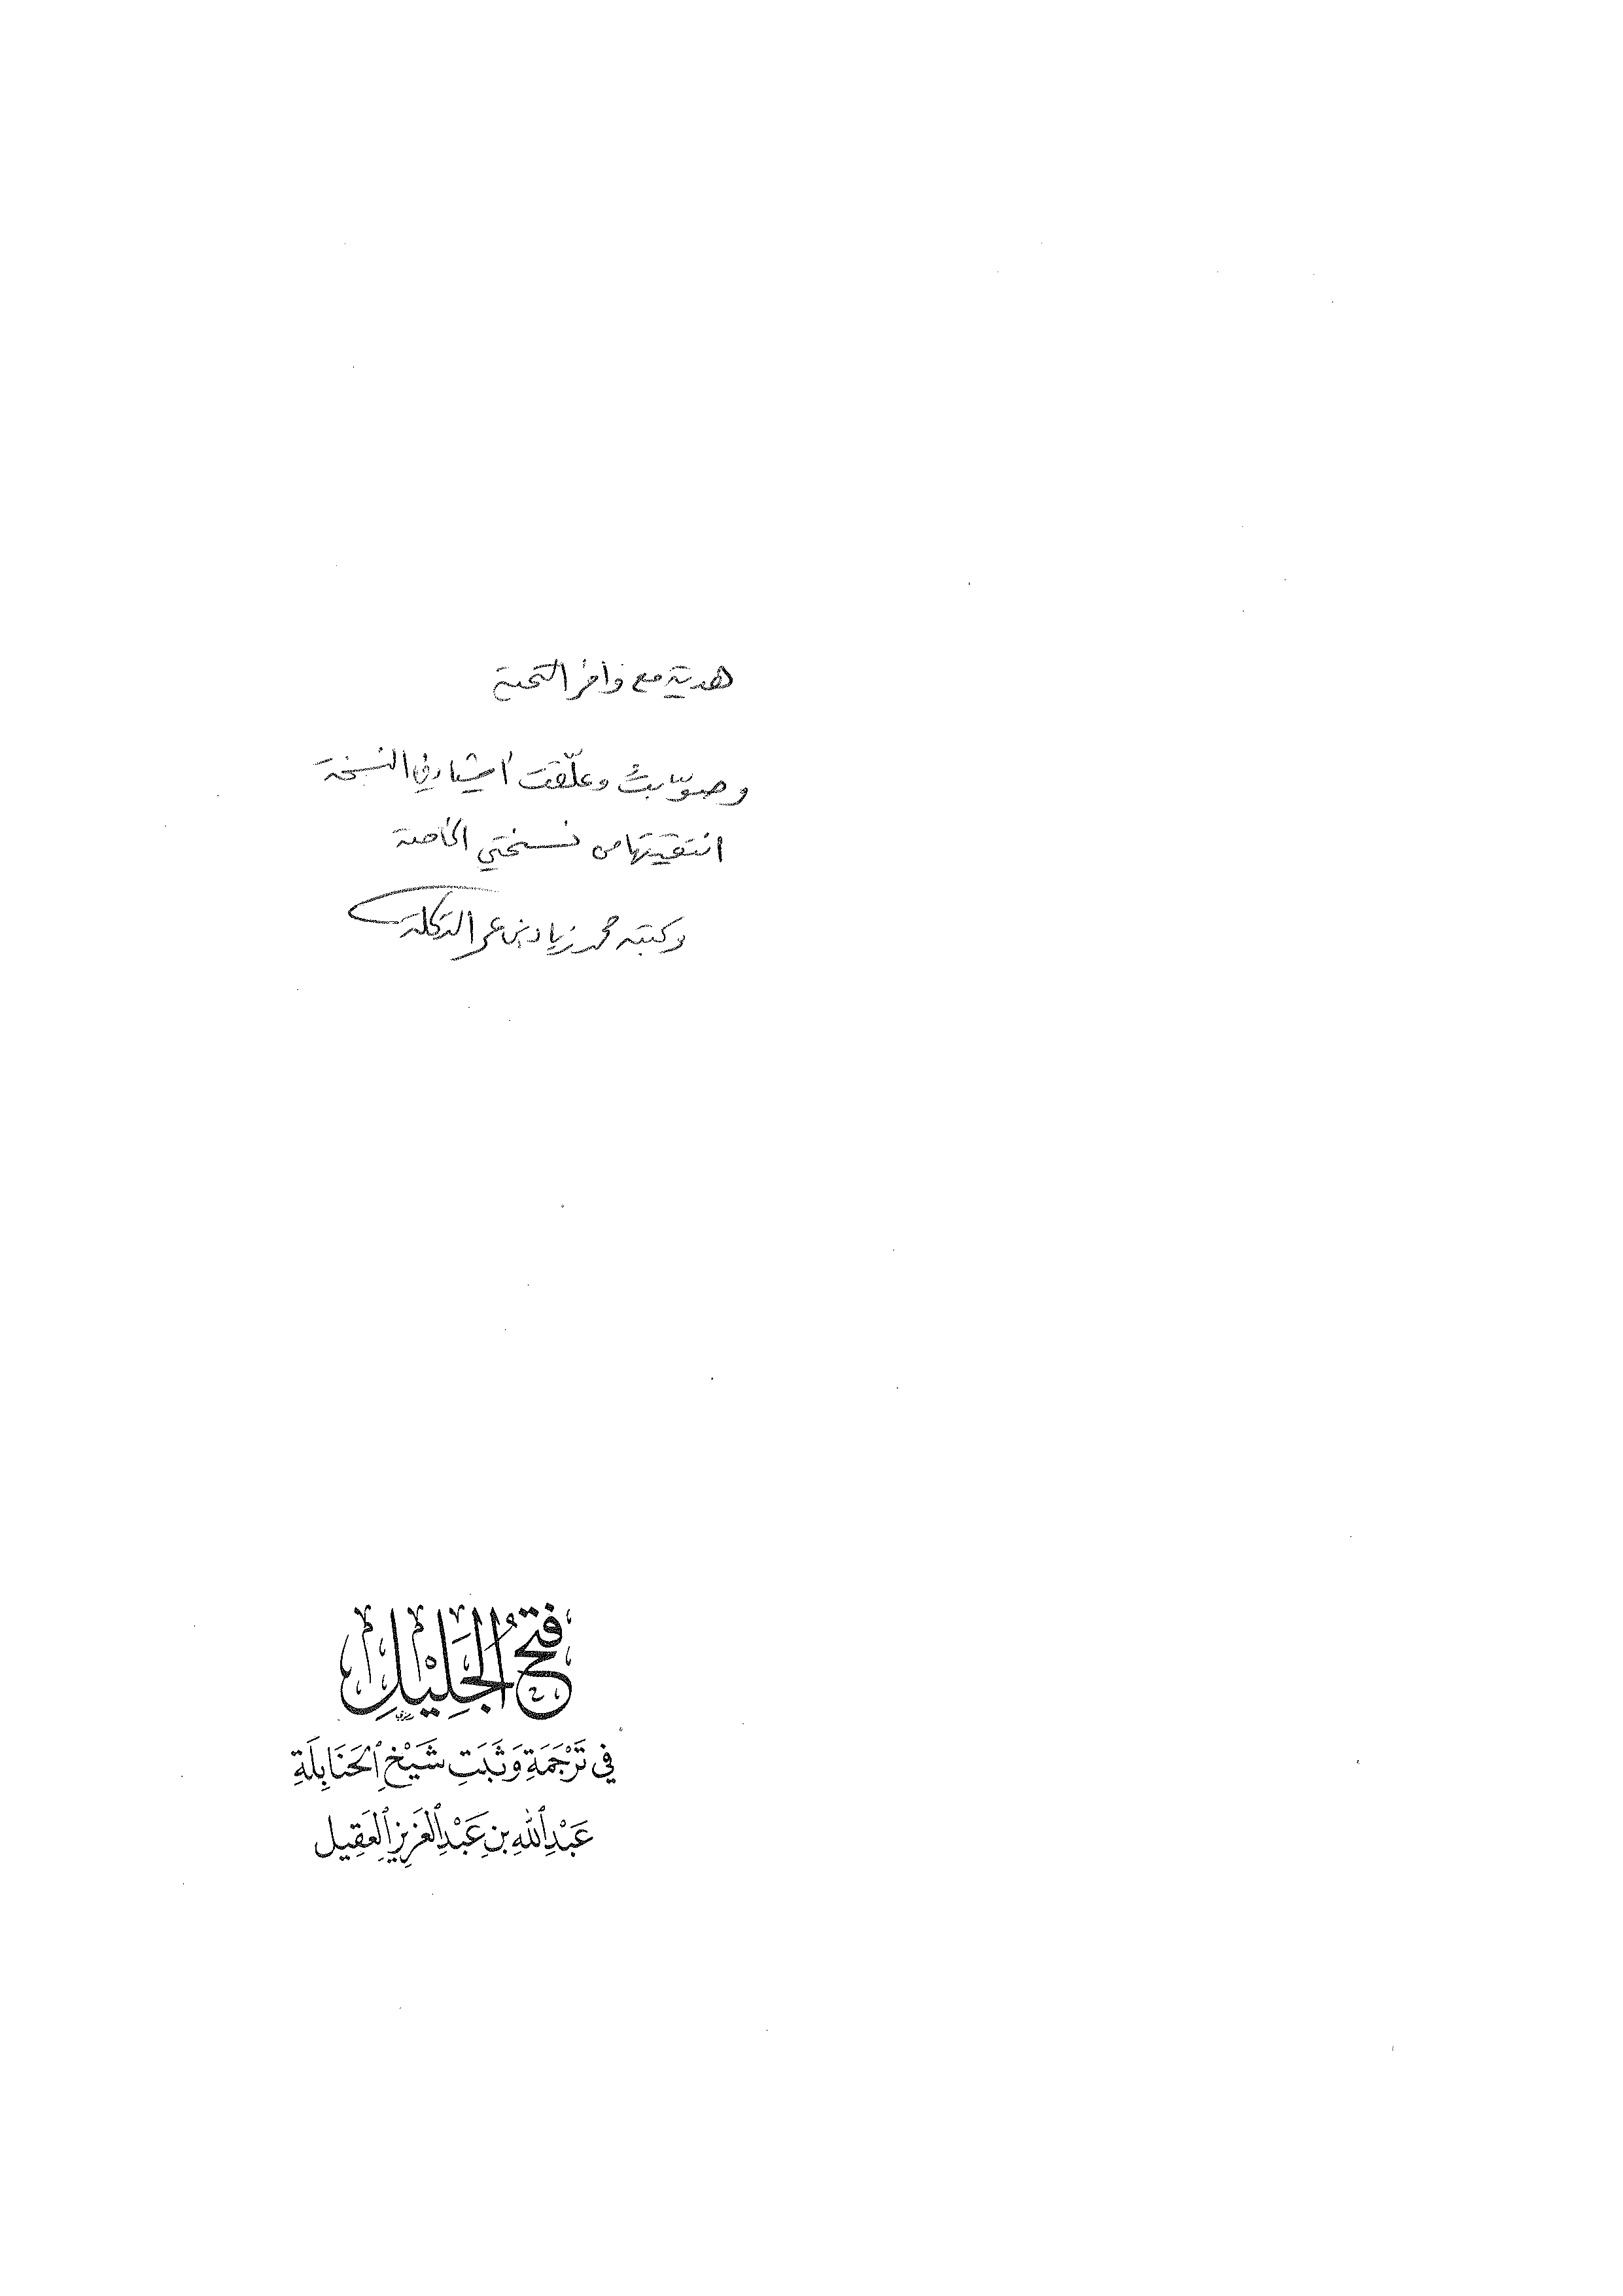 هدية مع وافر التحية
وصوّبتُ وعلّقت أشياء في النسخة
انتقيتها من نسختي الخاصة
وكتبه محمد زياد بن عمر التكلة
فَتْحُ الجَلِيْلِ
في تَرْجَمَةِ وَثَبَتِ شَيْخِ ٱلحَنَابِلَةِ
عَبْدِ ٱللهِ بنِ عَبْدِ ٱلعَزِيزِ ٱلعَقِيل